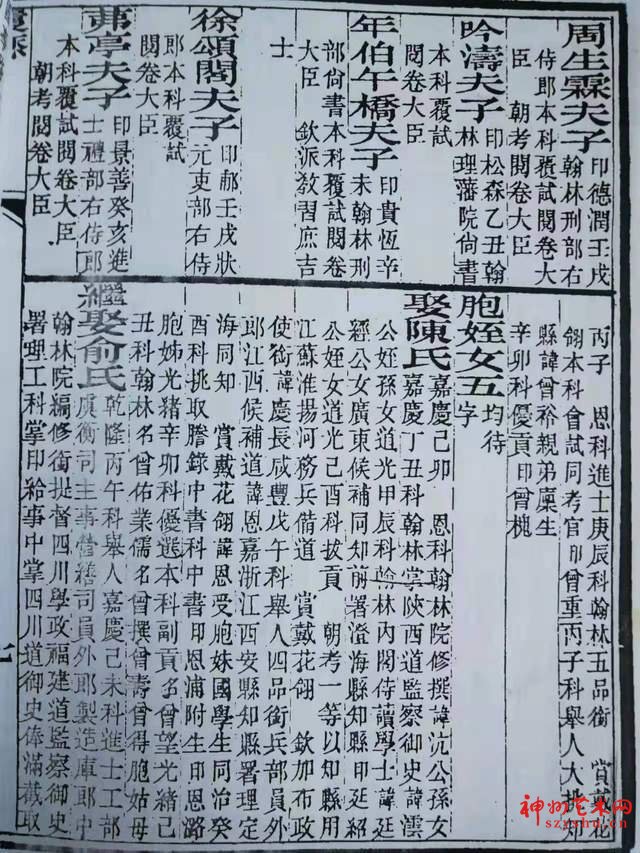 周生霖夫子
印德潤壬戌
翰林刑部右
侍郎本科覆試閱卷大
臣 朝考閱卷大臣
吟濤夫子
印松森乙丑翰
林理藩院尙書
本科覆試
閱卷大臣
年伯午橋夫子
印貴恆辛
未翰林刑
部尙書本科覆試閱卷
大臣 欽派敎習庶吉
士
徐頌閣夫子
印郝壬戌狀
元吏部右侍
郎本科覆試
閱卷大臣
茀亭夫子
印景善癸亥進
士禮部右侍郎
本科覆試閱卷大臣
朝考閱卷大臣
丙子 恩科進士庚辰科翰林五品銜 賞戴花
翎本科會試同考官印曾重丙子科舉人大挑知
縣諱曾裕親弟廩生
辛卯科優貢印曾槐
胞姪女五
均待
字
娶陳氏
嘉慶己卯 恩科翰林院修撰諱沆公孫女
嘉慶丁丑科翰林掌陝西道監察御史諱澐
公姪孫女道光甲辰科翰林內閣侍讀學士諱廷
經公女廣東候補同知前署澄海縣知縣印廷紹
公姪女道光己酉科拔貢 朝考一等以知縣用
江蘇淮揚河務兵備道 賞戴花翎 欽加布政
使銜諱慶長咸豐戊午科舉人四品銜兵部員外
郎江西候補道諱恩嘉浙江西安縣知縣署理定
海同知 賞戴花翎諱恩受胞妹國學生同治癸
酉科挑取謄錄中書科中書印恩浦附生印恩潞
胞姊光緖辛卯科優選本科副貢名曾望光緖己
丑科翰林名曾佑業儒名曾撰曾壽曾得胞姑母
繼娶俞氏
乾隆丙午科舉人嘉慶己未科進士工部
虞衡司主事營繕司員外郎製造庫郎中
翰林院編修銜提督四川學政福建道監察御史
署理工科掌印給事中掌四川道御史俸滿截取
七
神州艺术网
szyssb.cn